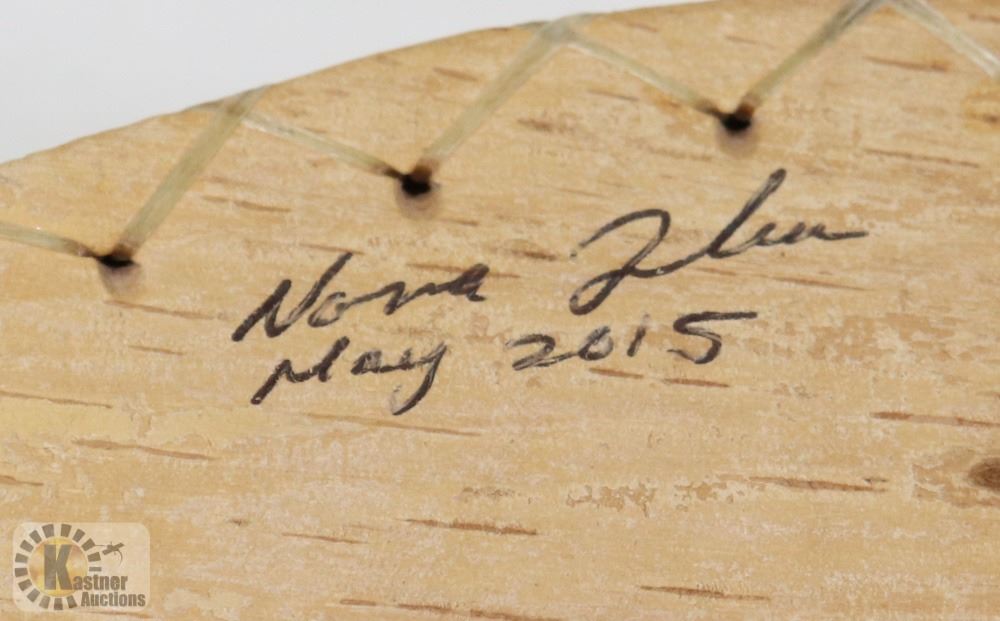 Nora
May 2015
Kastner
Auctions